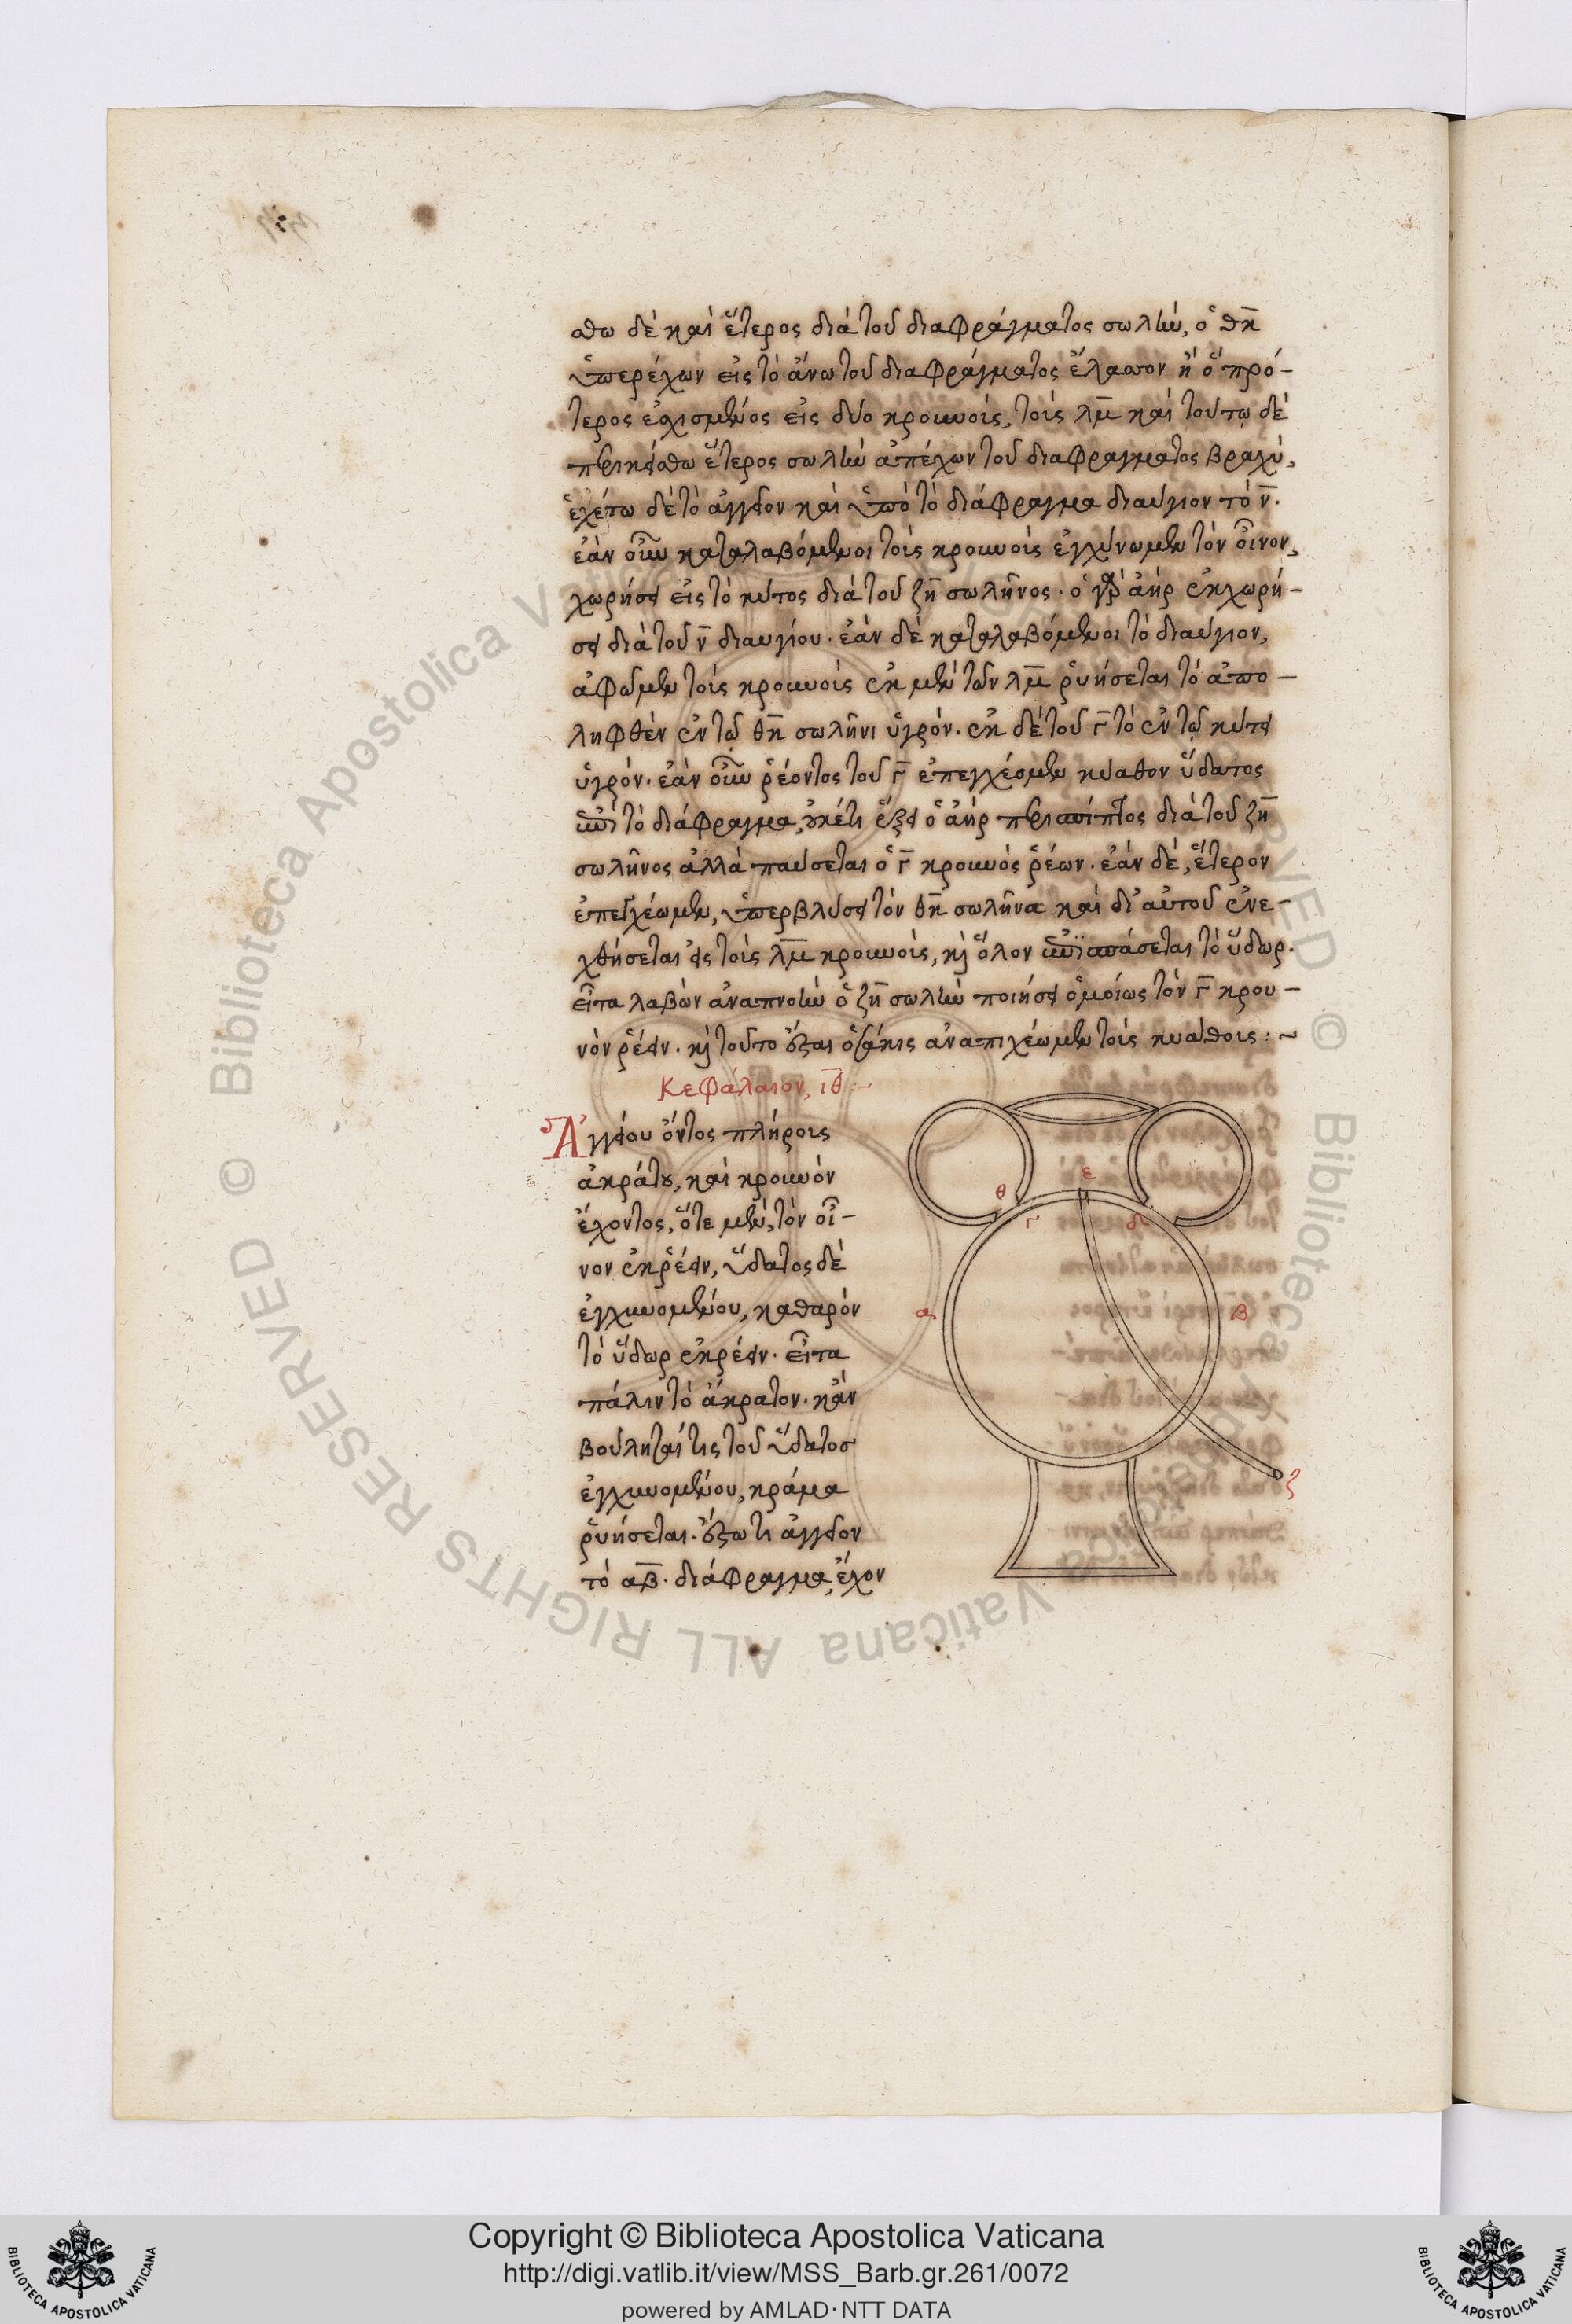 σθω δὲ καὶ ἕτερος διὰ τοῦ διαφράγματος σωλὴν, ὁ θκ̅
ὑπερέχων εἰς τὸ ἄνω τοῦ διαφράγματος ἔλασσον ἢ ὁ πρό-
τερος ἐσχισμένος εἰς δύο κρουνοὺς, τοὺς λμ̅ καὶ τούτῳ δὲ
περικείσθω ἕτερος σωλὴν ἀπέχων τοῦ διαφράγματος βραχύ,
ἐχέτω δὲ τὸ ἀγγεῖον καὶ ὑπὸ τὸ διάφραγμα διαύγιον τὸ ν̅.
ἐὰν οὖν καταλαβόμενοι τοὺς κρουνοὺς ἐγχύνωμεν τὸν οἶνον,
χωρήσει εἰς τὸ κύτος διὰ τοῦ ζη̅ σωλῆνος. ὁ γὰρ ἀὴρ ἐκχωρή-
σει διὰ τοῦ ν̅ διαυγίου. ἐὰν δὲ καταλαβόμενοι τὸ διαύγιον,
ἀφῶμεν τοὺς κρουνοὺς ἐκ μὲν τῶν λμ̅ ῥυήσεται τὸ ἀπο-
ληφθὲν ἐν τῷ θκ̅ σωλῆνι ὑγρόν. ἐκ δὲ τοῦ γ̅ τὸ ἐν τῷ κύτει
ὑγρόν. ἐὰν οὖν ῥέοντος τοῦ γ̅ ἐπεγχέομεν κύαθον ὕδατος
ἐπὶ τὸ διάφραγμα, οὐκέτι ἕξει ὁ ἀὴρ παρείσπτωσιν διὰ τοῦ ζη̅
σωλῆνος ἀλλὰ παύσεται ὁ γ̅ κρουνὸς ῥέων. ἐὰν δὲ, ἕτερον
ἐπεγχέωμεν, ὑπερβλύσει τὸν θκ̅ σωλῆνα καὶ δι' αὐτοῦ ἐνε-
χθήσεται εἰς τοὺς λμ̅ κρουνοὺς, καὶ ὅλον ἐπισπάσεται τὸ ὕδωρ.
εἶτα λαβὼν ἀναπνοὴν ὁ ζη̅ σωλὴν ποιήσει ὁμοίως τὸν γ̅ κρου-
νὸν ῥέειν. καὶ τοῦτο ἔσται ὁσάκις ἀναπιχέωμεν τοὺς κυάθους:~
Κεφάλαιον, ιθ̅:-
Ἀγγείου ὄντος πλήρους
ἀκράτου, καὶ κρουνὸν
ἔχοντος, ὅτε μὲν, τὸν οἶ-
νον ἐκρέειν, ὕδατος δὲ
ἐγχυνομένου, καθαρὸν
τὸ ὕδωρ ἐκρέειν. εἶτα
πάλιν τὸ ἄκρατον. κἂν
βούληταί τις τοῦ ὕδατοσ
ἐγχυνομένου, κράμα
ῥυήσεται. ἔστω τι ἀγγεῖον
τὸ αβ̅. διάφραγμα, ἔχον
ε
θ
γ
δ
α
β
ζ
© Biblioteca Apostolica Vaticana ALL RIGHTS RESERVED
Copyright © Biblioteca Apostolica Vaticana
http://digi.vatlib.it/view/MSS_Barb.gr.261/0072
powered by AMLAD·NTT DATA
BIBLIOTECA APOSTOLICA VATICANA
BIBLIOTECA APOSTOLICA VATICANA